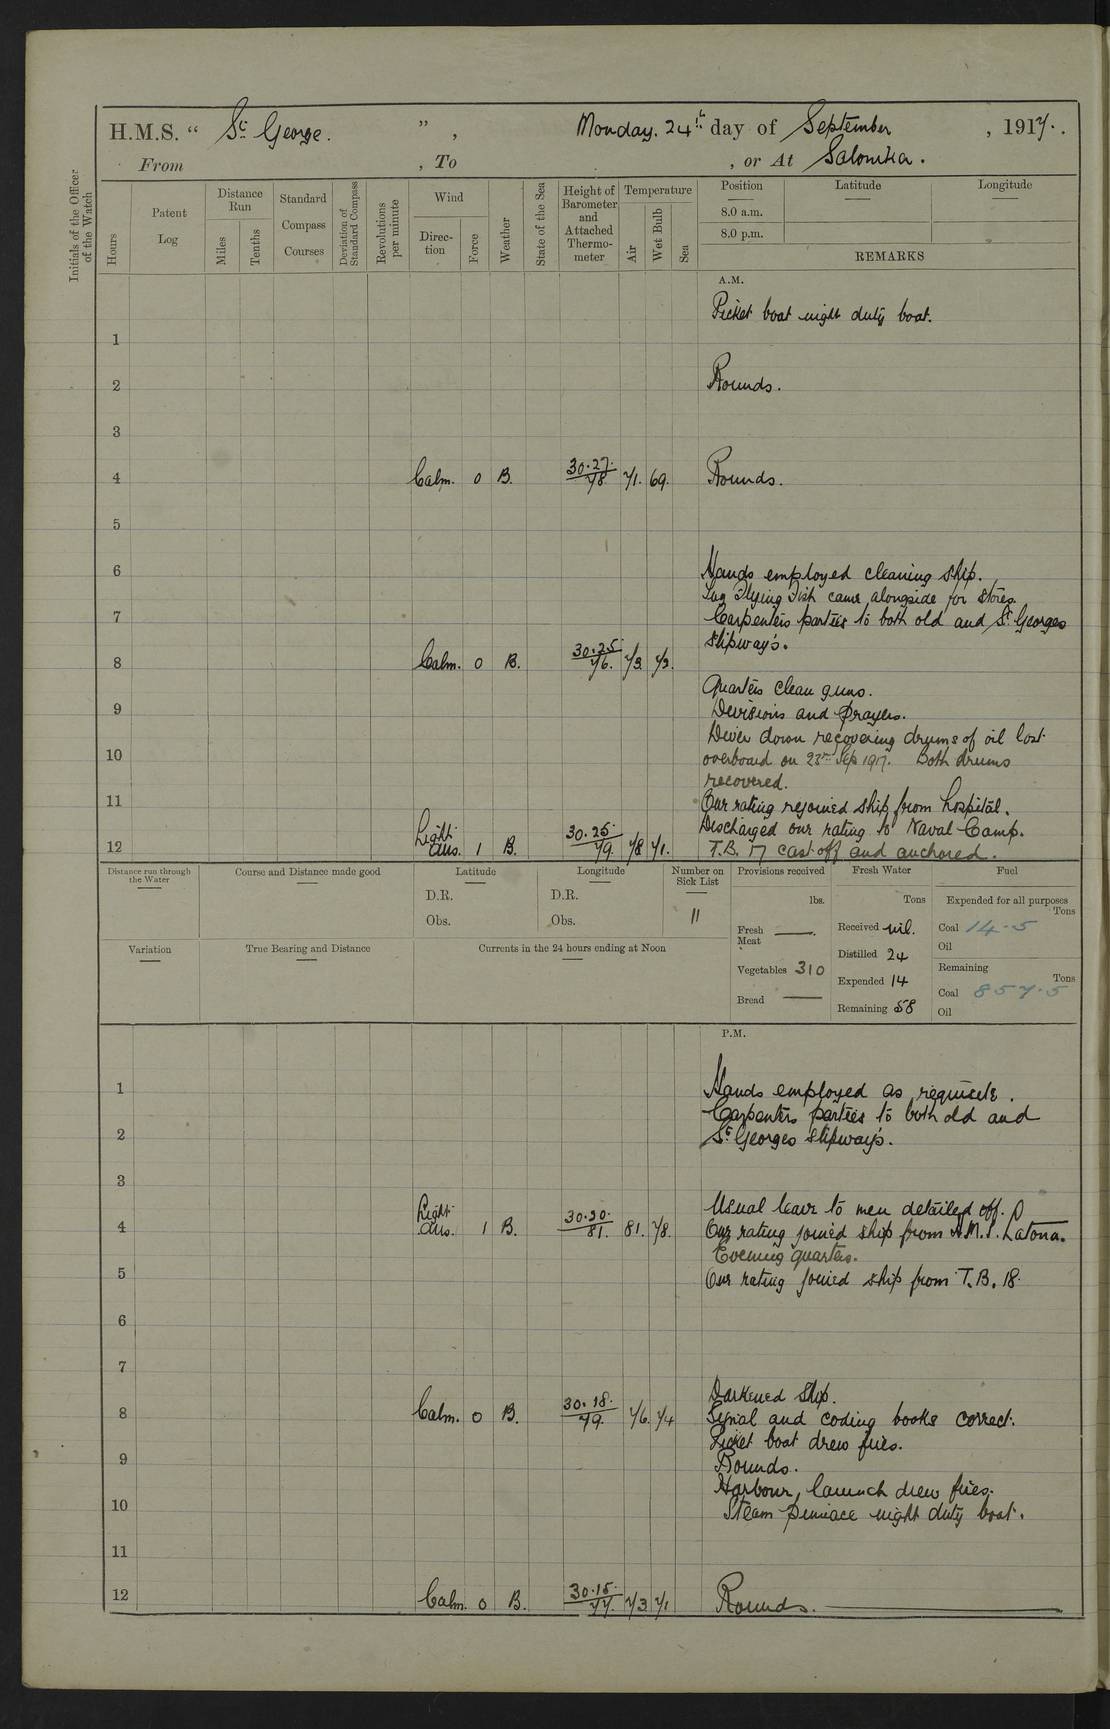 H.M.S. " St George. " , Monday. 24th day of September , 1917.
From , To , or At Salonika.
Initials of the Officer of the Watch
Hours
Patent Log
Distance Run
Miles
Tenths
Standard Compass Courses
Deviation of Standard Compass
Revolutions per minute
Wind
Direction
Force
Weather
State of the Sea
Height of Barometer and Attached Thermometer
Temperature
Air
Wet Bulb
Sea
Position Latitude Longitude
8.0 a.m.
8.0 p.m.
REMARKS
A.M.
Picket boat night duty boat.
1
2 Rounds.
3
4 Calm. 0 B. 30.27. 78 71. 69. Rounds.
5
6 Hands employed cleaning ship.
Tug Flying Fish came alongside for stores.
7 Carpenters parties to both old and St Georges
slipway's.
8 Calm. 0 B. 30.25. 76. 73. 72.
Quarters clean guns.
9 Divisions and prayers.
Diver down recovering drums of oil lost
10 overboard on 23rd Sep 1917. Both drums
recovered.
11 One rating rejoined ship from hospital.
Discharged one rating to Naval Camp.
12 Light airs. 1 B. 30.25. 79. 78 71. T.B. 17 cast off and anchored.
Distance run through the Water
Course and Distance made good
Latitude
D.R.
Obs.
Longitude
D.R.
Obs.
Number on Sick List
11
Provisions received
lbs.
Fresh Meat —
Vegetables 310
Bread —
Fresh Water
Tons
Received nil.
Distilled 24
Expended 14
Remaining 58
Fuel
Expended for all purposes
Tons
Coal 14.5
Oil
Remaining
Tons
Coal 857.5
Oil
Variation
True Bearing and Distance
Currents in the 24 hours ending at Noon
P.M.
1 Hands employed as requisite.
Carpenters parties to both old and
2 St Georges slipway's.
3
Usual leave to men detailed off.
4 Light airs. 1 B. 30.20. 81. 81. 78. One rating joined ship from H.M.S. Latona.
Evening quarters.
5 One rating joined ship from T.B. 18.
6
7
Darkened ship.
8 Calm. 0 B. 30.18. 79. 76. 74 Signal and coding books correct.
Picket boat drew fires.
9 Rounds.
Harbour launch drew fires.
10 Steam pinnace night duty boat.
11
12 Calm. 0 B. 30.15. 77. 73 71 Rounds.